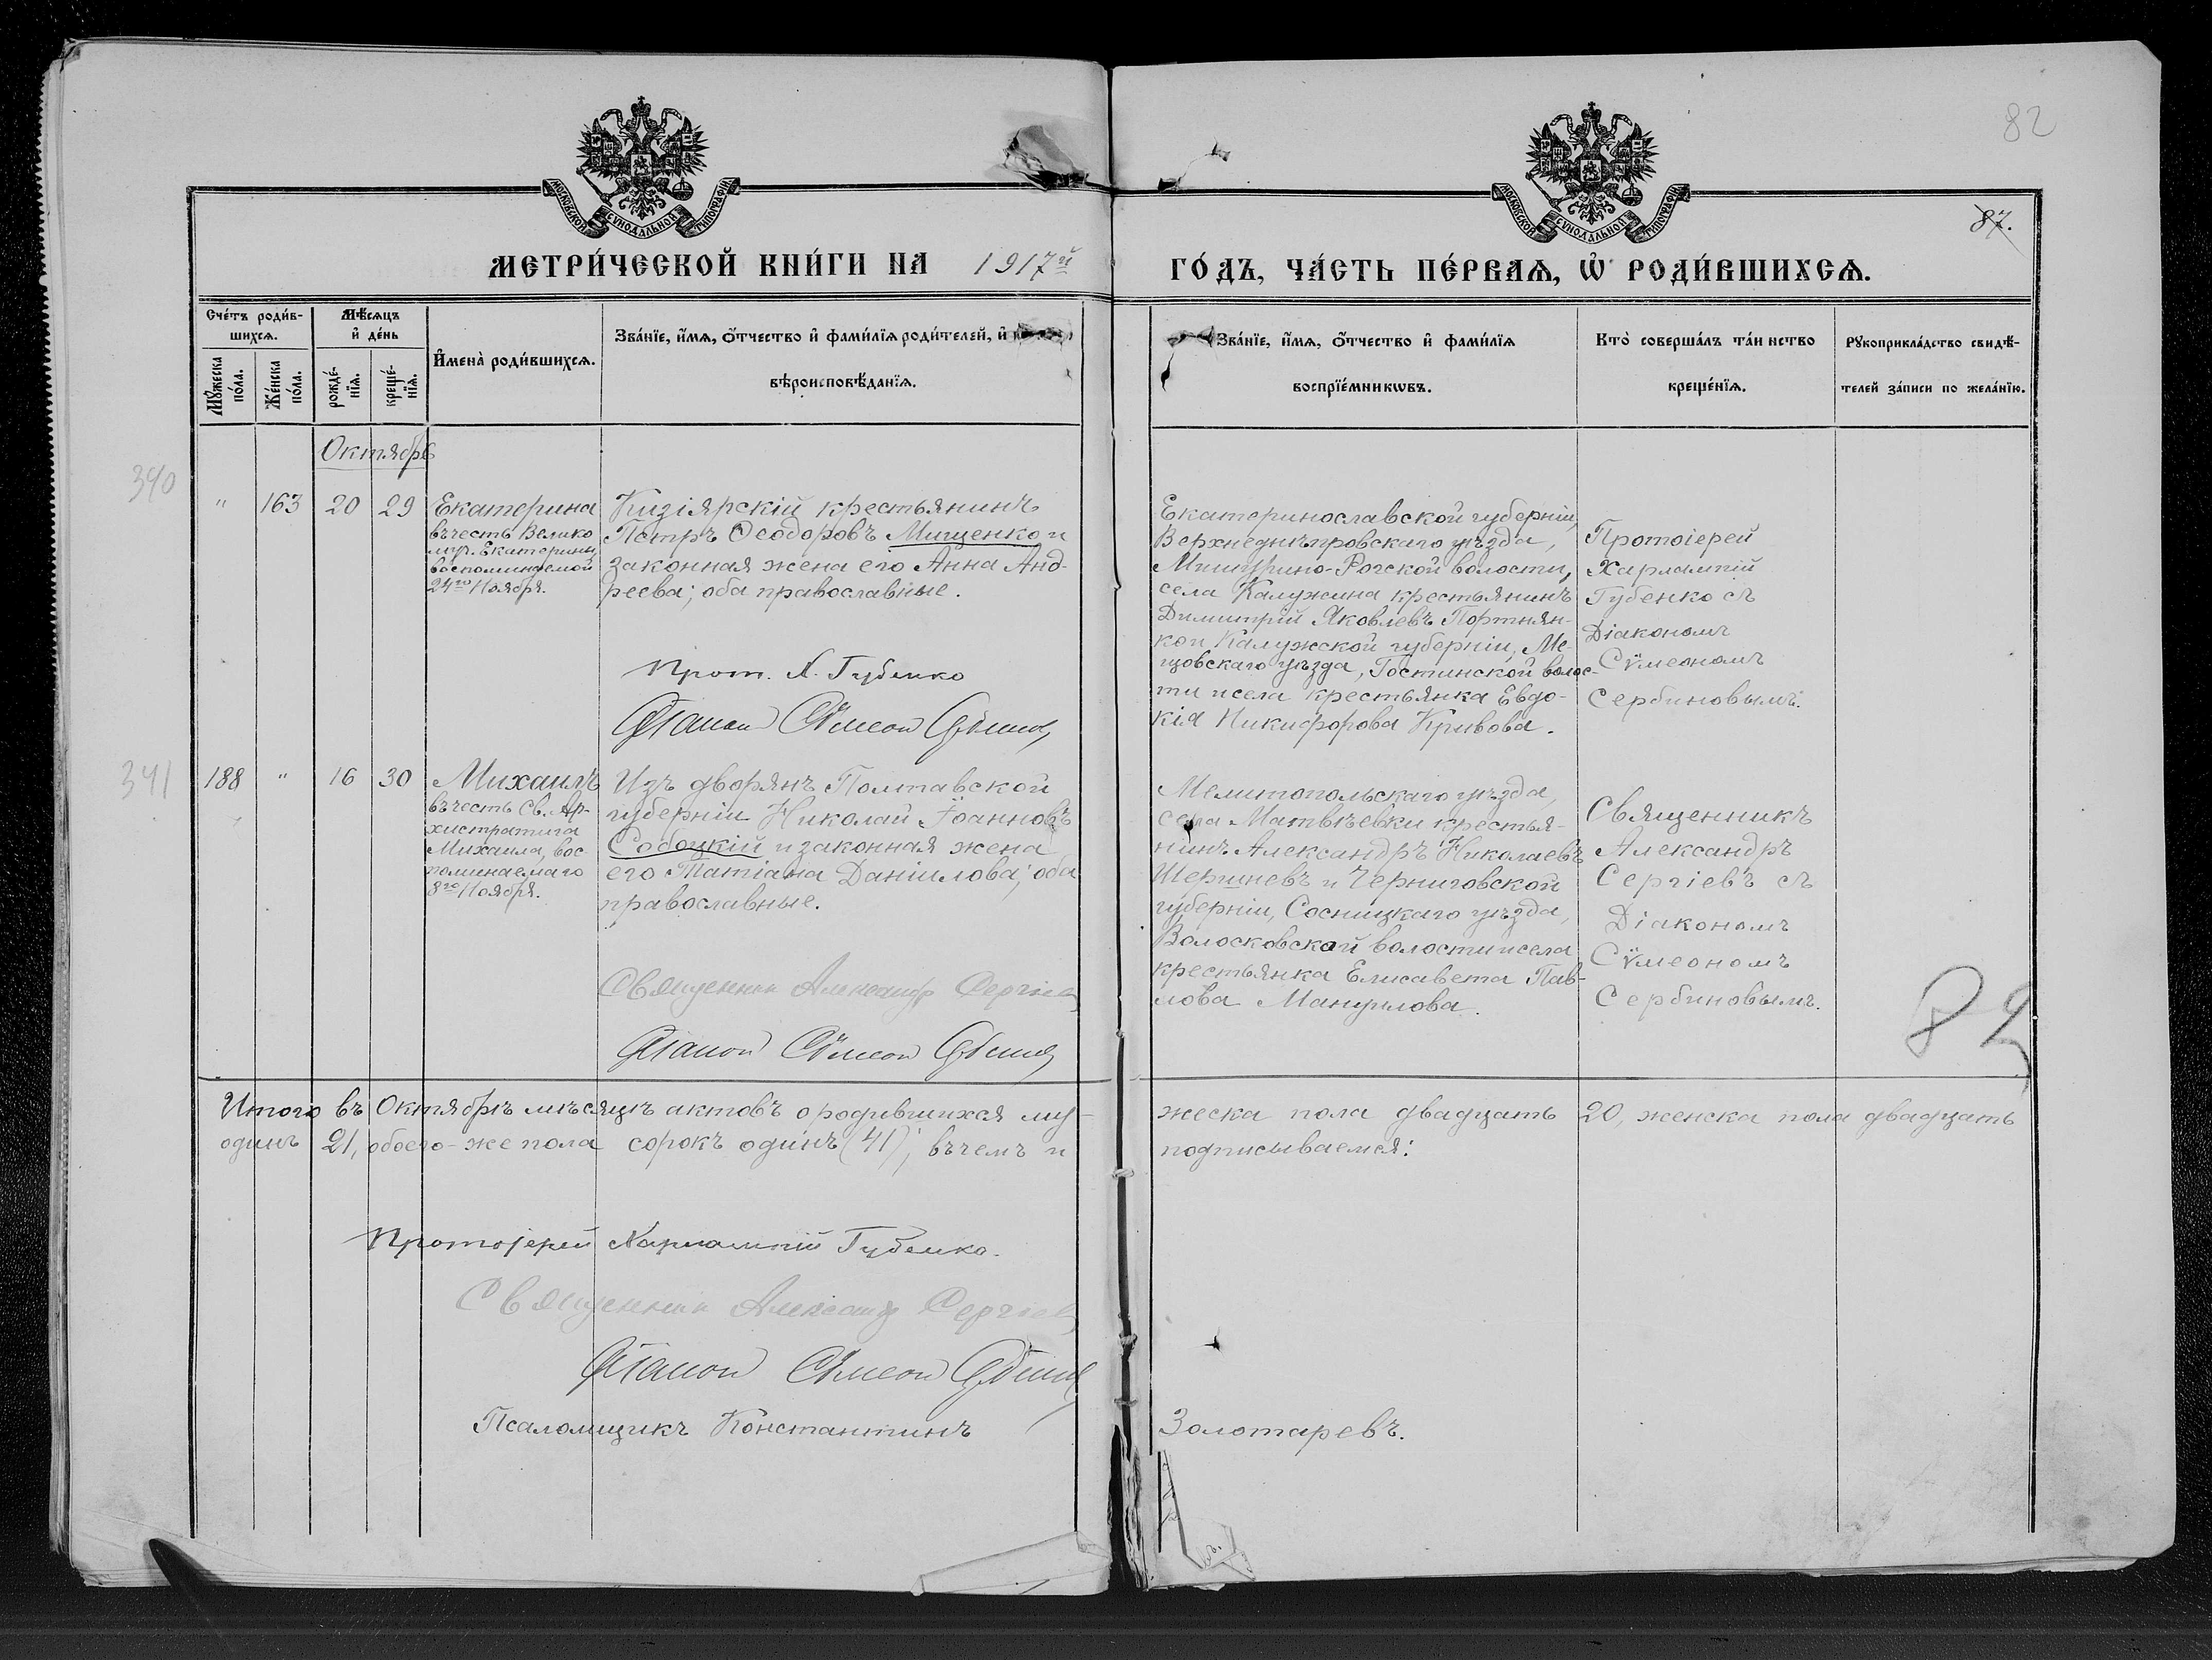 82
87.
МОСКОВСКОЙ СѴНОДАЛЬНОЙ ТИПОГРАФІИ
МОСКОВСКОЙ СѴНОДАЛЬНОЙ ТИПОГРАФІИ
МЕТРИ́ЧЕСКОЙ КНИ́ГИ НА 1917й
ГО́ДЪ, ЧА́СТЬ ПЕ́РВАѦ, Ѡ҆ РОДИ́ВШИХСѦ.
Сче́тъ роди́в-
шихсѧ.
Мѣ́сѧцъ
и҆ де́нь
Мꙋ́жеска по́ла.
Же́нска по́ла.
рожде́-нїѧ.
креще́-нїѧ.
И҆мена̀ роди́вшихсѧ.
Зва́нїе, и҆́мѧ, ѻ҆́тчество и҆ фами́лїѧ роди́телей, и҆
вѣроисповѣ́данїѧ.
Зва́нїе, и҆́мѧ, ѻ҆́тчество и҆ фами́лїѧ
воспрїе́мникѡвъ.
Кто̀ соверша́лъ та́инство
креще́нїѧ.
Рꙋкоприкла́дство свидѣ́-
телей за́писи по жела́нїю.
Октябрь
340
" 163 20 29
Екатерина
въ честь Велико
муч. Екатерины
воспоминаемой
24го Ноября.
Кизіярскій крестьянинъ
Петръ Ѳеодоровъ Мищенко и
законная жена его Анна Анд-
реева; оба православные.
Прот. Х. Губенко
Діаконъ Сѵмеон Сербинов
Екатеринославской губерніи,
Верхнеднѣпровскаго уѣзда,
Мишурино-Рогской волости,
села Калужина крестьянинъ
Димитрій Яковлевъ Портнян-
кои Калужской губерніи, Ме-
щовскаго уѣзда, Гостинской волос-
ти и села крестьянка Евдо-
кія Никифорова Кривова.
Протоіерей
Харлампій
Губенко съ
Діакономъ
Сѵмеономъ
Сербиновымъ.
341
188 " 16 30
Михаилъ
въ честь Св. Ар-
хистратига
Михаила, вос
поминаемаго
8го Ноября.
Изъ дворянъ Полтавской
губерніи Николай Іоанновъ
Собоцкій и законная жена
его Татіана Даніилова; оба
православные.
Священник Александр Сергіев
Діаконъ Сѵмеон Сербинов
Мелитопольскаго уѣзда,
села Матвѣевки крестья-
нинъ Александръ Николаевъ
Шершневъ и Черниговской
губерніи, Сосницкаго уѣзда,
Волосковской волости и села
крестьянка Елисавета Пав-
лова Мануилова.
Священникъ
Александръ
Сергіевъ съ
Діакономъ
Сѵмеономъ
Сербиновымъ.
82
Итого въ Октябрѣ мѣсяцѣ актовъ о родившихся му-
жеска пола двадцать 20, женска пола двадцать
одинъ 21, обоего-же пола сорокъ одинъ (41); въ чемъ и
подписываемся:
Протоіерей Харлампій Губенко.
Священник Александр Сергіев
Діаконъ Сѵмеон Сербинов
Псаломщикъ Константинъ
Золотаревъ.